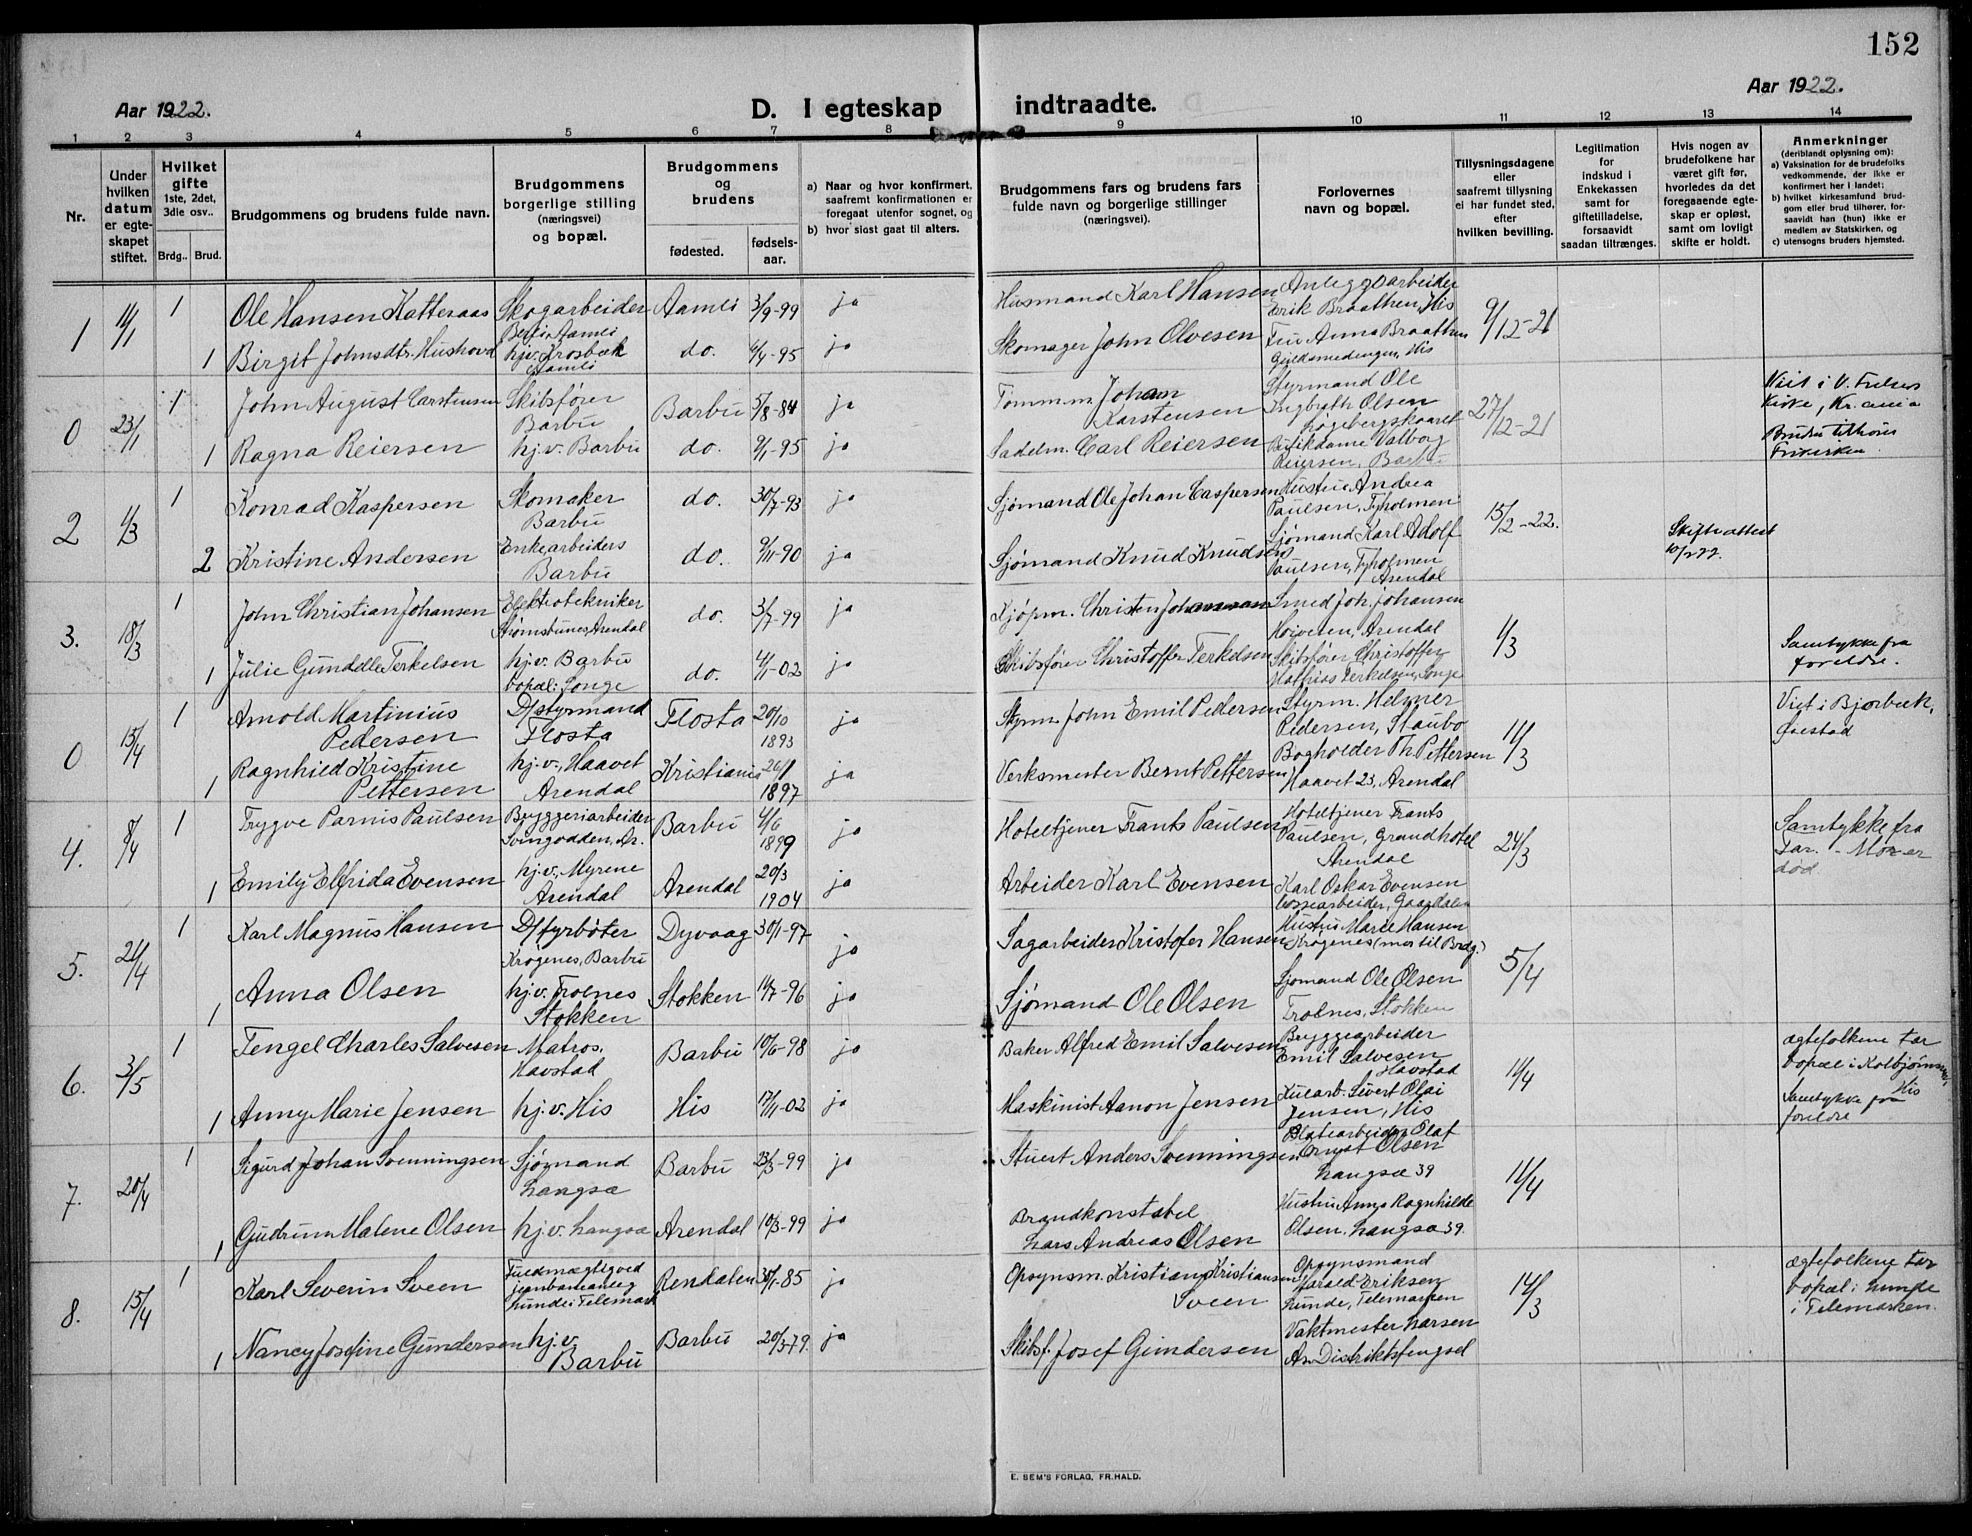 152
Aar 1922.
D. I egteskap indtraadte.
Aar 1922.
1 2 3 4 5 6 7 8 9 10 11 12 13 14
Nr.
Under hvilken datum er egteskapet stiftet.
Hvilket gifte 1ste, 2det, 3die osv..
Brdg.. Brud.
Brudgommens og brudens fulde navn.
Brudgommens borgerlige stilling (næringsvei) og bopæl.
Brudgommens og brudens
fødested.
fødselsaar.
a) Naar og hvor konfirmert, saafremt konfirmationen er foregaat utenfor sognet, og
b) hvor sidst gaat til alters.
Brudgommens fars og brudens fars fulde navn og borgerlige stillinger (næringsvei).
Forlovernes navn og bopæl.
Tillysningsdagene eller saafremt tillysning ei har fundet sted, efter hvilken bevilling.
Legitimation for indskud i Enkekassen samt for giftetilladelse, forsaavidt saadan tiltrænges.
Hvis nogen av brudefolkene har været gift før, hvorledes da det foregaaende egteskap er opløst, samt om lovligt skifte er holdt.
Anmerkninger (deriblandt oplysning om):
a) Vaksination for de brudefolks vedkommende, der ikke er konfirmert her i landet;
b) hvilket kirkesamfund brudgom eller brud tilhører, forsaavidt han (hun) ikke er medlem av Statskirken, og
c) utensogns bruders hjemsted.
1 11/1 1 Ole Hansen Katteraas Skogarbeider Aamli 3/9-99 ja Husmand Karl Hansen Anleggsarbeider Erik Braathen, His 9/12-21
1 Birgit Johnsdtr. Hushovd hjv. Krosbæk Aamli do. 4/4-95 ja Skomager John Olvesen Fru Anna Braathen His
0 23/1 1 John August Carstensen Skibsfører Barbu Barbu 5/8-84 ja Tømm.m. Johan Karstensen Styrmand Ole Ingbrith Olsen Løgebergskaaret 27/12-21 Viet i V. Frelsers Kirke, Kr.ania
1 Ragna Reiersen hj.v. Barbu do. 9/1-95 ja Sadelm. Carl Reiersen Butikdame Valborg Reiersen, Barbu Bruden tilhører Frikirken
2 1/3 1 Konrad Kaspersen Skomaker Barbu do. 30/7-93 ja Sjømand Ole Johan Caspersen Hustru Andrea Paulsen, Tyholmen 15/2-22.
2 Kristine Andersen Enkearbeiders Barbu do. 9/11-90 ja Sjømand Knud Knudsen Sjømand Karl Adolf Paulsen, Tyholmen Arendal Skifteattest
3. 18/3 1 John Christian Johansen Elektrotekniker Strømsbunes, Arendal do. 3/7-99 ja Kjøpm. Christen Johannsen Smed Joh. Johansen Arendal 1/3
1 Julie Gundelle Terkelsen hj.v. Barbu bopæl: Songe do. 4/1-02 ja Skibsfører Christoffer Terkelsen Skibsfører Christoffer Mathias Terkelsen, Songe Samtykke fra foreldre.
0 15/4 1 Arnold Martinius Pedersen D/styrmand Flosta Flosta 20/10 1893 ja Styrm. John Emil Pedersen Styrm. Helmer Pedersen, Staubø 11/3 Viet i Bjorbæk, Øiestad
1 Ragnhild Kristine Pettersen hj.v., Haavet Arendal Kristiania 26/1 1897 ja Verksmester Bernt Pettersen Bogholder Th. Pettersen Haavet 23, Arendal
4. 8/4 1 Trygve Parnis Paulsen Bryggeriarbeider Svingodden, Ar. Barbu 4/6 1899 ja Hoteltjener Frants Paulsen Hoteltjener Frants Paulsen, Grand hotel Arendal 24/3 Samtykke fra Far. - Mor er død
1 Emily Elfrida Evensen hj.v., Myrene Arendal Arendal 20/3 1904 ja Arbeider Karl Evensen Karl Oskar Evensen
5. 21/4 1 Karl Magnus Hansen D/fyrbøter Krøgenes, Barbu Dyvaag 30/1-97 ja Sagarbeider Kristofer Hansen Hustru Marie Hansen Krøgenes (mor til Brdg.) 5/4
1 Anna Olsen hj.v. Tronnes Stokken Stokken 11/7-96 ja Sjømand Ole Olsen Sjømand Ole Olsen Stokken
6. 3/5 1 Tengel Charles Salvesen Matros. Havstad Barbu 10/6-98 ja Baker Alfred Emil Salvesen Bryggearbeider Emil Salvesen Havstad 11/4 ægtefolkene tar bopæl i Kolbjørnsnes, His
1 Anny Marie Jensen hj.v. His His 17/11-02 ja Maskinist Aanon Jensen Sivert Olai Jensen, His Samtykke fra foreldre
7. 20/4 1 Sigurd Johan Svenningsen Sjømand Langsæ Barbu 23/3-99 ja Stuert Anders Svenningsen Platearbeider Olaf Ernst Olsen Langsæ 39 11/4
1 Gudrun Malene Olsen hj.v. Langsæ Arendal 10/3-99 ja Brandkonstabel Lars Andreas Olsen Hustru Anna Ragnhilde Olsen, Langsæ 39.
8. 15/4 1 Karl Severin Sveen Fuldmægtig ved jernbaneanlæg Lunde i Telemark Rendalen 30/1-85 ja Opsynsm. Kristian Kristiansen Sveen Opsynsmand Harald Eriksen Lunde, Telemarken 14/3 ægtefolkene tar bopæl i Lunde i Telemarken.
1 Nancy Josefine Gundersen hj.v. Barbu Barbu 20/3-79. ja Skibsf. Josef Gundersen Vaktmester Larsen Ar. Distriktsfengsel
E. SEM'S FORLAG, FR.HALD.